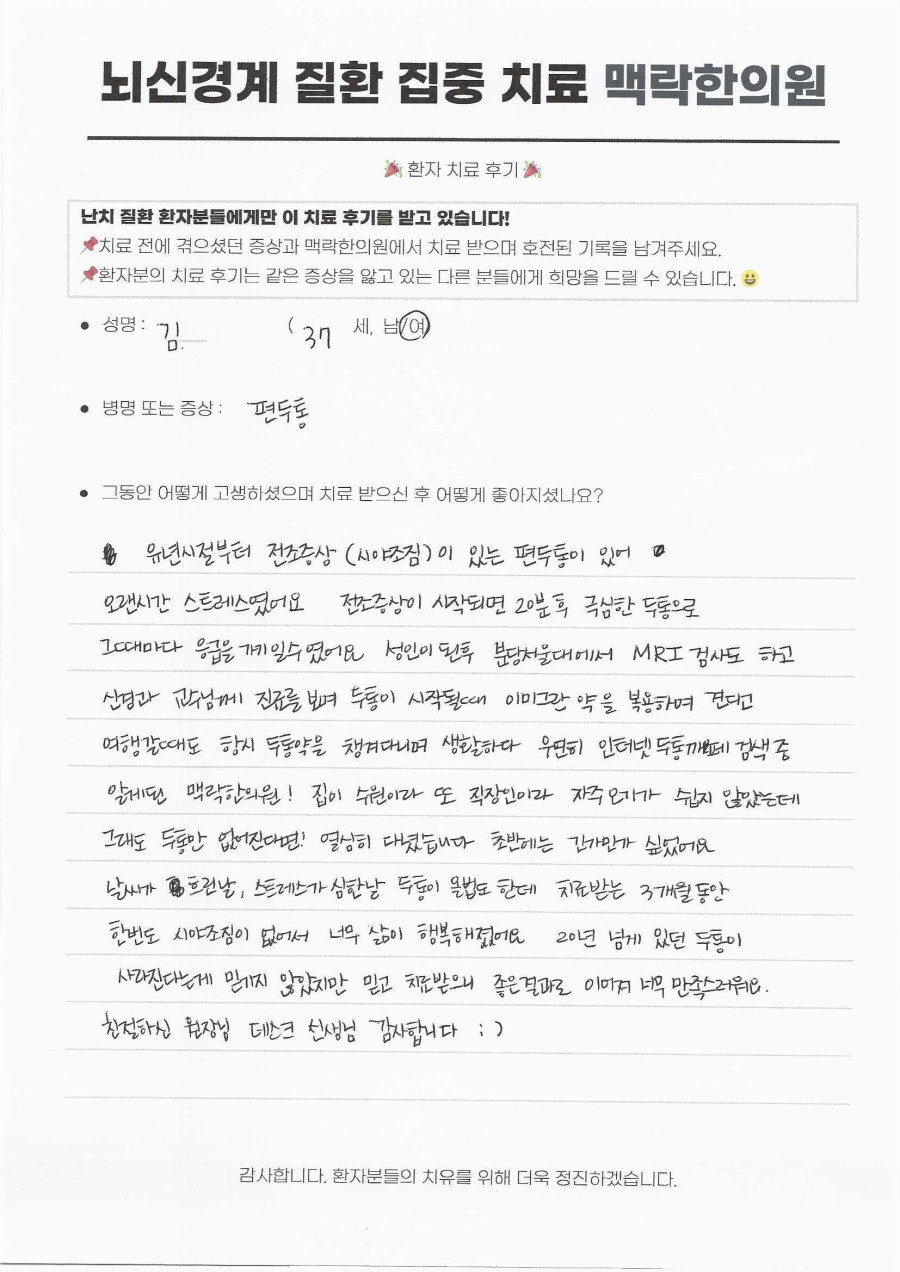 뇌신경계 질환 집중 치료 맥락한의원
🎉 환자 치료 후기 🎉
난치 질환 환자분들에게만 이 치료 후기를 받고 있습니다!
📌치료 전에 겪으셨던 증상과 맥락한의원에서 치료 받으며 호전된 기록을 남겨주세요.
📌환자분의 치료 후기는 같은 증상을 앓고 있는 다른 분들에게 희망을 드릴 수 있습니다. 😀
• 성명 : 김 ( 37 세, 남/여)
• 병명 또는 증상 : 편두통
• 그동안 어떻게 고생하셨으며 치료 받으신 후 어떻게 좋아지셨나요?
유년시절부터 전조증상 (시야조짐)이 있는 편두통이 있어
오랜시간 스트레스였어요 전조증상이 시작되면 20분후 극심한 두통으로
그때마다 응급을 일수였어요 성인이 된후 분당서울대에서 MRI 검사도 하고
신경과 교수님께 진료를 보며 두통이 시작될때 이미그란 약을 복용하며 견디고
여행갈때도 항시 두통약을 챙겨다니며 생활하다 우연히 인터넷 두통까페 검색중
알게된 맥락한의원! 집이 수원이라 또 직장인이라 자주오기가 쉽지 않았는데
그래도 두통만 없어진다면! 열심히 다녔습니다 초반에는 긴가민가 싶었어요
날씨가 흐린날, 스트레스가 심한날 두통이 올법도 한데 치료받는 3개월동안
한번도 시야조짐이 없어서 너무 삶이 행복해졌어요 20년 넘게 있던 두통이
사라진다는게 믿기지 않았지만 믿고 치료받으니 좋은결과로 이어져 너무 만족스러워요.
친절하신 원장님 데스크 선생님 감사합니다 : )
감사합니다. 환자분들의 치유를 위해 더욱 정진하겠습니다.